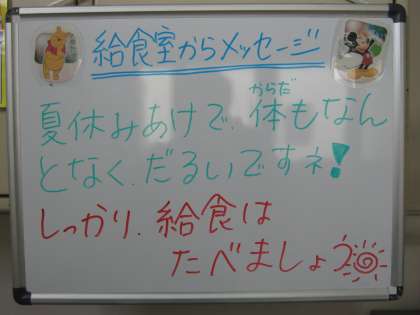 給食室からメッセージ
夏休みあけで、体もなん
からだ
となく、だるいですネ!
しっかり、給食は
たべましょう